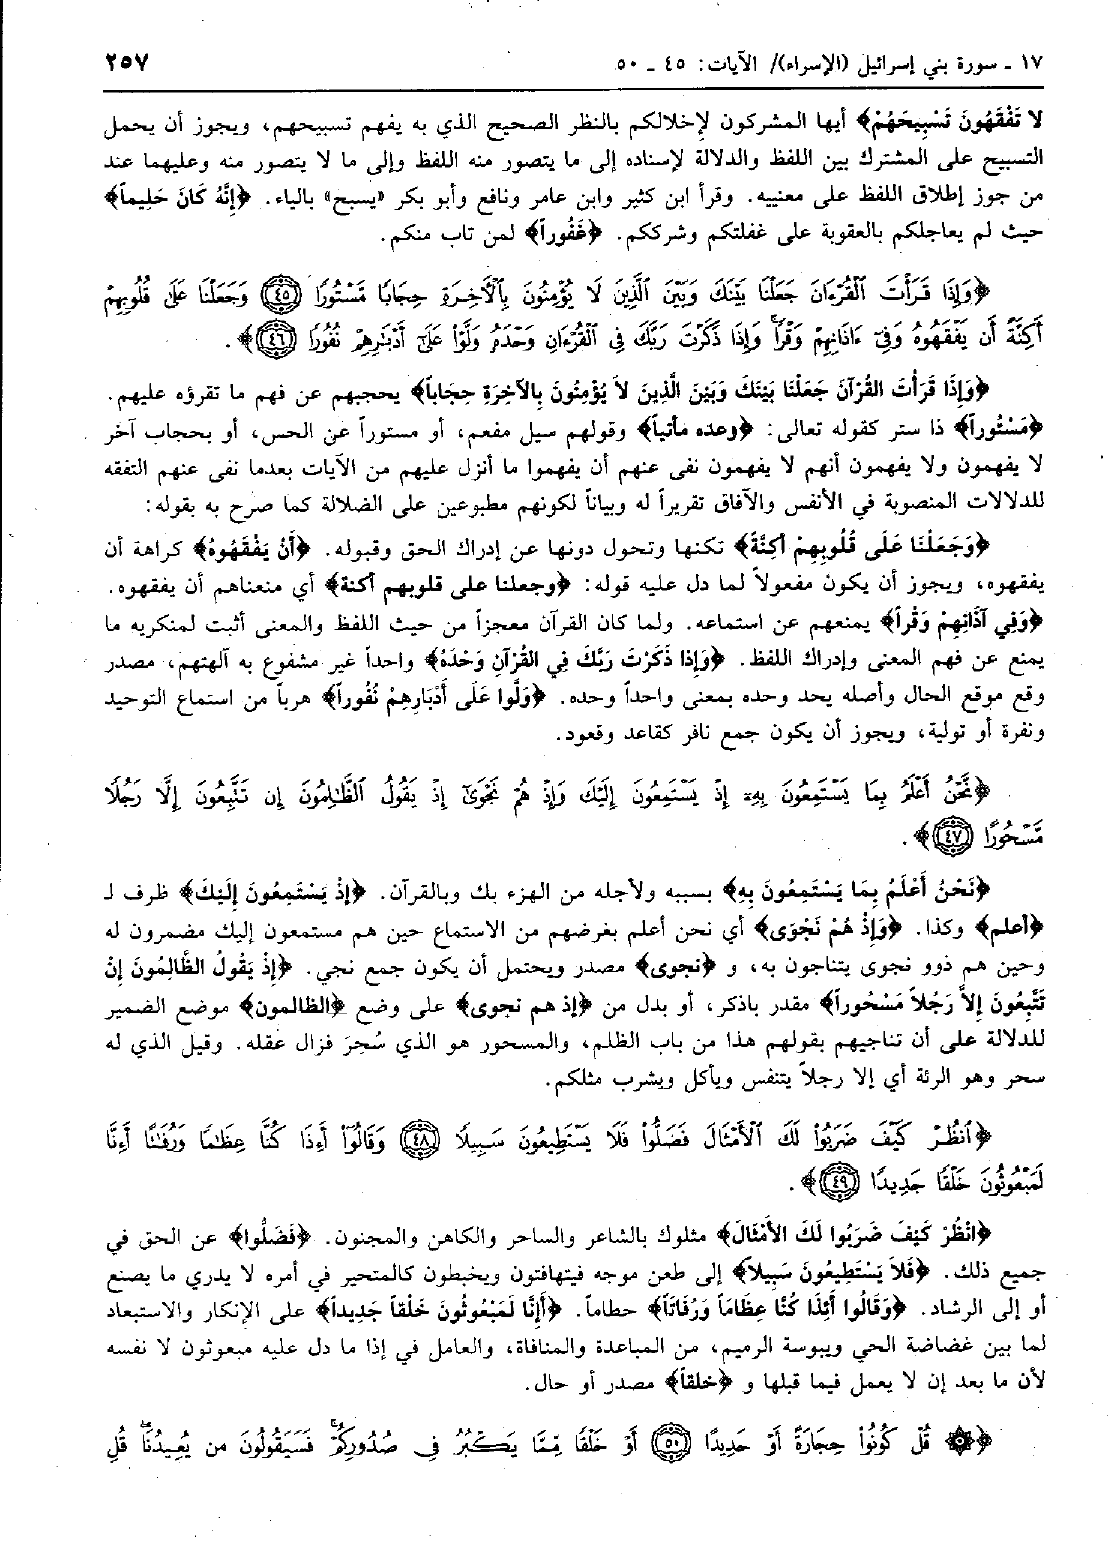 ١٧ ـ سورة بني إسرائيل (الإسراء)/ الآيات: ٤٥ ـ ٥٠ ٢٥٧
لا تَفْقَهُونَ تَسْبِيحَهُمْ﴾ أيها المشركون لإِخلالكم بالنظر الصحيح الذي به يفهم تسبيحهم، ويجوز أن يحمل
التسبيح على المشترك بين اللفظ والدلالة لإسناده إلى ما يتصور منه اللفظ وإلى ما لا يتصور منه وعليهما عند
من جوز إطلاق اللفظ على معنييه. وقرأ ابن كثير وابن عامر ونافع وأبو بكر «يسبح» بالياء. ﴿إِنَّهُ كَانَ حَلِيماً﴾
حيث لم يعاجلكم بالعقوبة على غفلتكم وشرككم. ﴿غَفُوراً﴾ لمن تاب منكم.
﴿وَإِذَا قَرَأْتَ ٱلْقُرْءَانَ جَعَلْنَا بَيْنَكَ وَبَيْنَ ٱلَّذِينَ لَا يُؤْمِنُونَ بِٱلْأَخِرَةِ حِجَابًا مَّسْتُورًا ﴿٤٥﴾ وَجَعَلْنَا عَلَىٰ قُلُوبِهِمْ
أَكِنَّةً أَن يَفْقَهُوهُ وَفِىٓ ءَاذَانِهِمْ وَقْرًا وَإِذَا ذَكَرْتَ رَبَّكَ فِى ٱلْقُرْءَانِ وَحْدَهُ وَلَّوْا۟ عَلَىٰٓ أَدْبَٰرِهِمْ نُفُورًا ﴿٤٦﴾﴾.
﴿وَإِذَا قَرَأْتَ القُرْآنَ جَعَلْنَا بَيْنَكَ وَبَيْنَ الَّذِينَ لاَ يُؤْمِنُونَ بِالآخِرَةِ حِجَاباً﴾ يحجبهم عن فهم ما تقرؤه عليهم.
﴿مَسْتُوراً﴾ ذا ستر كقوله تعالى: ﴿وعده مأتياً﴾ وقولهم سيل مفعم، أو مستوراً عن الحس، أو بحجاب آخر
لا يفهمون ولا يفهمون أنهم لا يفهمون نفى عنهم أن يفهموا ما أنزل عليهم من الآيات بعدما نفى عنهم التفقه
للدلالات المنصوبة في الأنفس والآفاق تقريراً له وبياناً لكونهم مطبوعين على الضلالة كما صرح به بقوله:
﴿وَجَعَلْنَا عَلَى قُلُوبِهِمْ أَكِنَّةً﴾ تكنها وتحول دونها عن إدراك الحق وقبوله. ﴿أَنْ يَفْقَهُوهُ﴾ كراهة أن
يفقهوه، ويجوز أن يكون مفعولاً لما دل عليه قوله: ﴿وجعلنا على قلوبهم أكنة﴾ أي منعناهم أن يفقهوه.
﴿وَفِي آذَانِهِمْ وَقْراً﴾ يمنعهم عن استماعه. ولما كان القرآن معجزاً من حيث اللفظ والمعنى أثبت لمنكريه ما
يمنع عن فهم المعنى وإدراك اللفظ. ﴿وَإِذَا ذَكَرْتَ رَبَّكَ فِي القُرْآنِ وَحْدَهُ﴾ واحداً غير مشفوع به آلهتهم، مصدر
وقع موقع الحال وأصله يحد وحده بمعنى واحداً وحده. ﴿وَلَّوا عَلَى أَدْبَارِهِمْ نُفُوراً﴾ هرباً من استماع التوحيد
ونفرة أو تولية، ويجوز أن يكون جمع نافر كقاعد وقعود.
﴿نَّحْنُ أَعْلَمُ بِمَا يَسْتَمِعُونَ بِهِۦٓ إِذْ يَسْتَمِعُونَ إِلَيْكَ وَإِذْ هُمْ نَجْوَىٰٓ إِذْ يَقُولُ ٱلظَّٰلِمُونَ إِن تَتَّبِعُونَ إِلَّا رَجُلًا
مَّسْحُورًا ﴿٤٧﴾﴾.
﴿نَحْنُ أَعْلَمُ بِمَا يَسْتَمِعُونَ بِهِ﴾ بسببه ولأجله من الهزء بك وبالقرآن. ﴿إِذْ يَسْتَمِعُونَ إِلَيْكَ﴾ ظرف لـ
﴿أعلم﴾ وكذا. ﴿وَإِذْ هُمْ نَجْوَى﴾ أي نحن أعلم بغرضهم من الاستماع حين هم مستمعون إليك مضمرون له
وحين هم ذوو نجوى يتناجون به، و ﴿نجوى﴾ مصدر ويحتمل أن يكون جمع نجي. ﴿إِذْ يَقُولُ الظَّالِمُونَ إِنْ
تَتَّبِعُونَ إِلاَّ رَجُلاً مَسْحُوراً﴾ مقدر باذكر، أو بدل من ﴿إذ هم نجوى﴾ على وضع ﴿الظالمون﴾ موضع الضمير
للدلالة على أن تناجيهم بقولهم هذا من باب الظلم، والمسحور هو الذي سُحِرَ فزال عقله. وقيل الذي له
سحر وهو الرئة أي إلا رجلاً يتنفس ويأكل ويشرب مثلكم.
﴿ٱنظُرْ كَيْفَ ضَرَبُوا۟ لَكَ ٱلْأَمْثَالَ فَضَلُّوا۟ فَلَا يَسْتَطِيعُونَ سَبِيلًا ﴿٤٨﴾ وَقَالُوٓا۟ أَءِذَا كُنَّا عِظَٰمًا وَرُفَٰتًا أَءِنَّا
لَمَبْعُوثُونَ خَلْقًا جَدِيدًا ﴿٤٩﴾﴾.
﴿انْظُرْ كَيْفَ ضَرَبُوا لَكَ الأَمْثَالَ﴾ مثلوك بالشاعر والساحر والكاهن والمجنون. ﴿فَضَلُّوا﴾ عن الحق في
جميع ذلك. ﴿فَلاَ يَسْتَطِيعُونَ سَبِيلاً﴾ إلى طعن موجه فيتهافتون ويخبطون كالمتحير في أمره لا يدري ما يصنع
أو إلى الرشاد. ﴿وَقَالُوا أَئِذَا كُنَّا عِظَاماً وَرُفَاتاً﴾ حطاماً. ﴿أَإِنَّا لَمَبْعُوثُونَ خَلْقاً جَدِيداً﴾ على الإنكار والاستبعاد
لما بين غضاضة الحي ويبوسة الرميم، من المباعدة والمنافاة، والعامل في إذا ما دل عليه مبعوثون لا نفسه
لأن ما بعد إن لا يعمل فيما قبلها و ﴿خلقاً﴾ مصدر أو حال.
﴿۞ قُلْ كُونُوا۟ حِجَارَةً أَوْ حَدِيدًا ﴿٥٠﴾ أَوْ خَلْقًا مِّمَّا يَكْبُرُ فِى صُدُورِكُمْ فَسَيَقُولُونَ مَن يُعِيدُنَا قُلِ